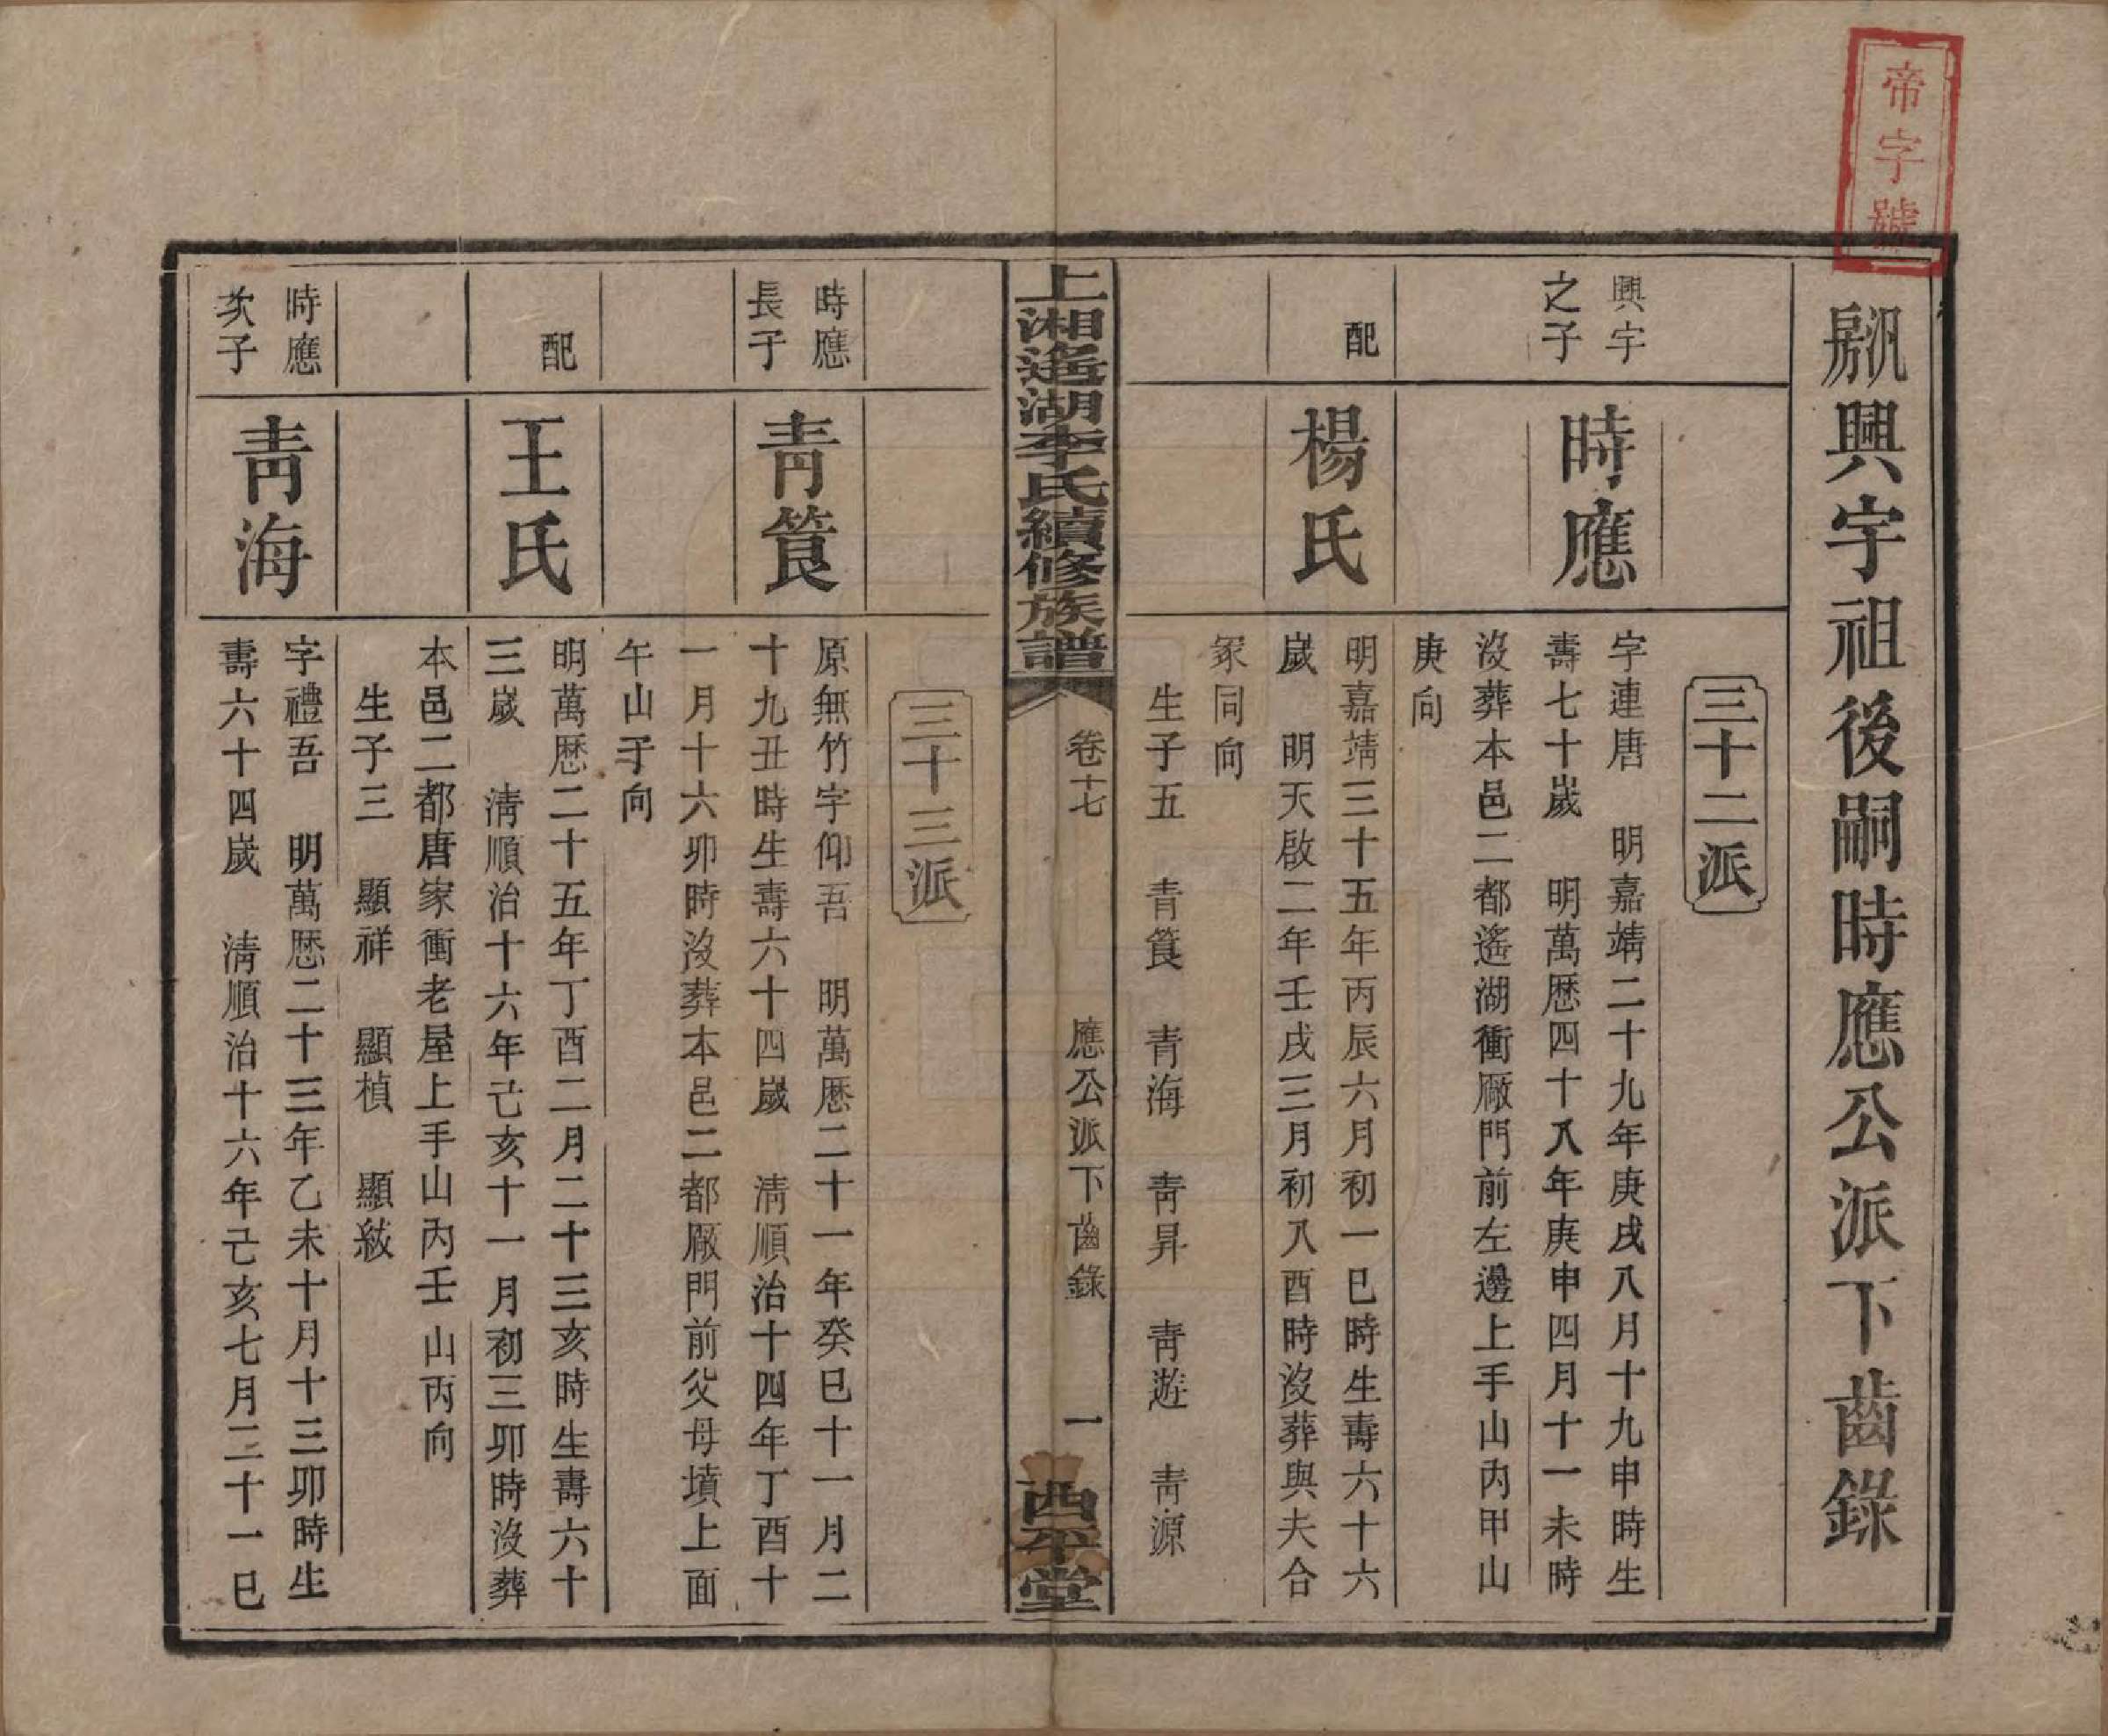 帝字號
颿房興宇祖後嗣時應公派下齒錄
三十二派
興宇
之子
時應
字連唐 明嘉靖二十九年庚戌八月十九申時生
壽七十歲 明萬歷四十八年庚申四月十一未時
沒葬本邑二都遙湖衝厰門前左邊上手山內甲山
庚向
配
楊氏
明嘉靖三十五年丙辰六月初一巳時生壽六十六
歲 明天啟二年壬戌三月初八酉時沒葬與夫合
冢同向
生子五 青筤 青海 青昇 青遊 青源
上湘遙湖李氏續修族譜
卷十七
應公派下齒錄
一
西平堂
三十三派
時應
長子
青筤
原無竹字仰吾 明萬歷二十一年癸巳十一月二
十九丑時生壽六十四歲 清順治十四年丁酉十
一月十六卯時沒葬本邑二都厰門前父母墳上面
午山子向
配
王氏
明萬歷二十五年丁酉二月二十三亥時生壽六十
三歲 清順治十六年己亥十一月初三卯時沒葬
本邑二都唐家衝老屋上手山內壬山丙向
生子三 顯祥 顯楨 顯紱
時應
次子
青海
字禮吾 明萬歷二十三年乙未十月十三卯時生
壽六十四歲 清順治十六年己亥七月二十一巳